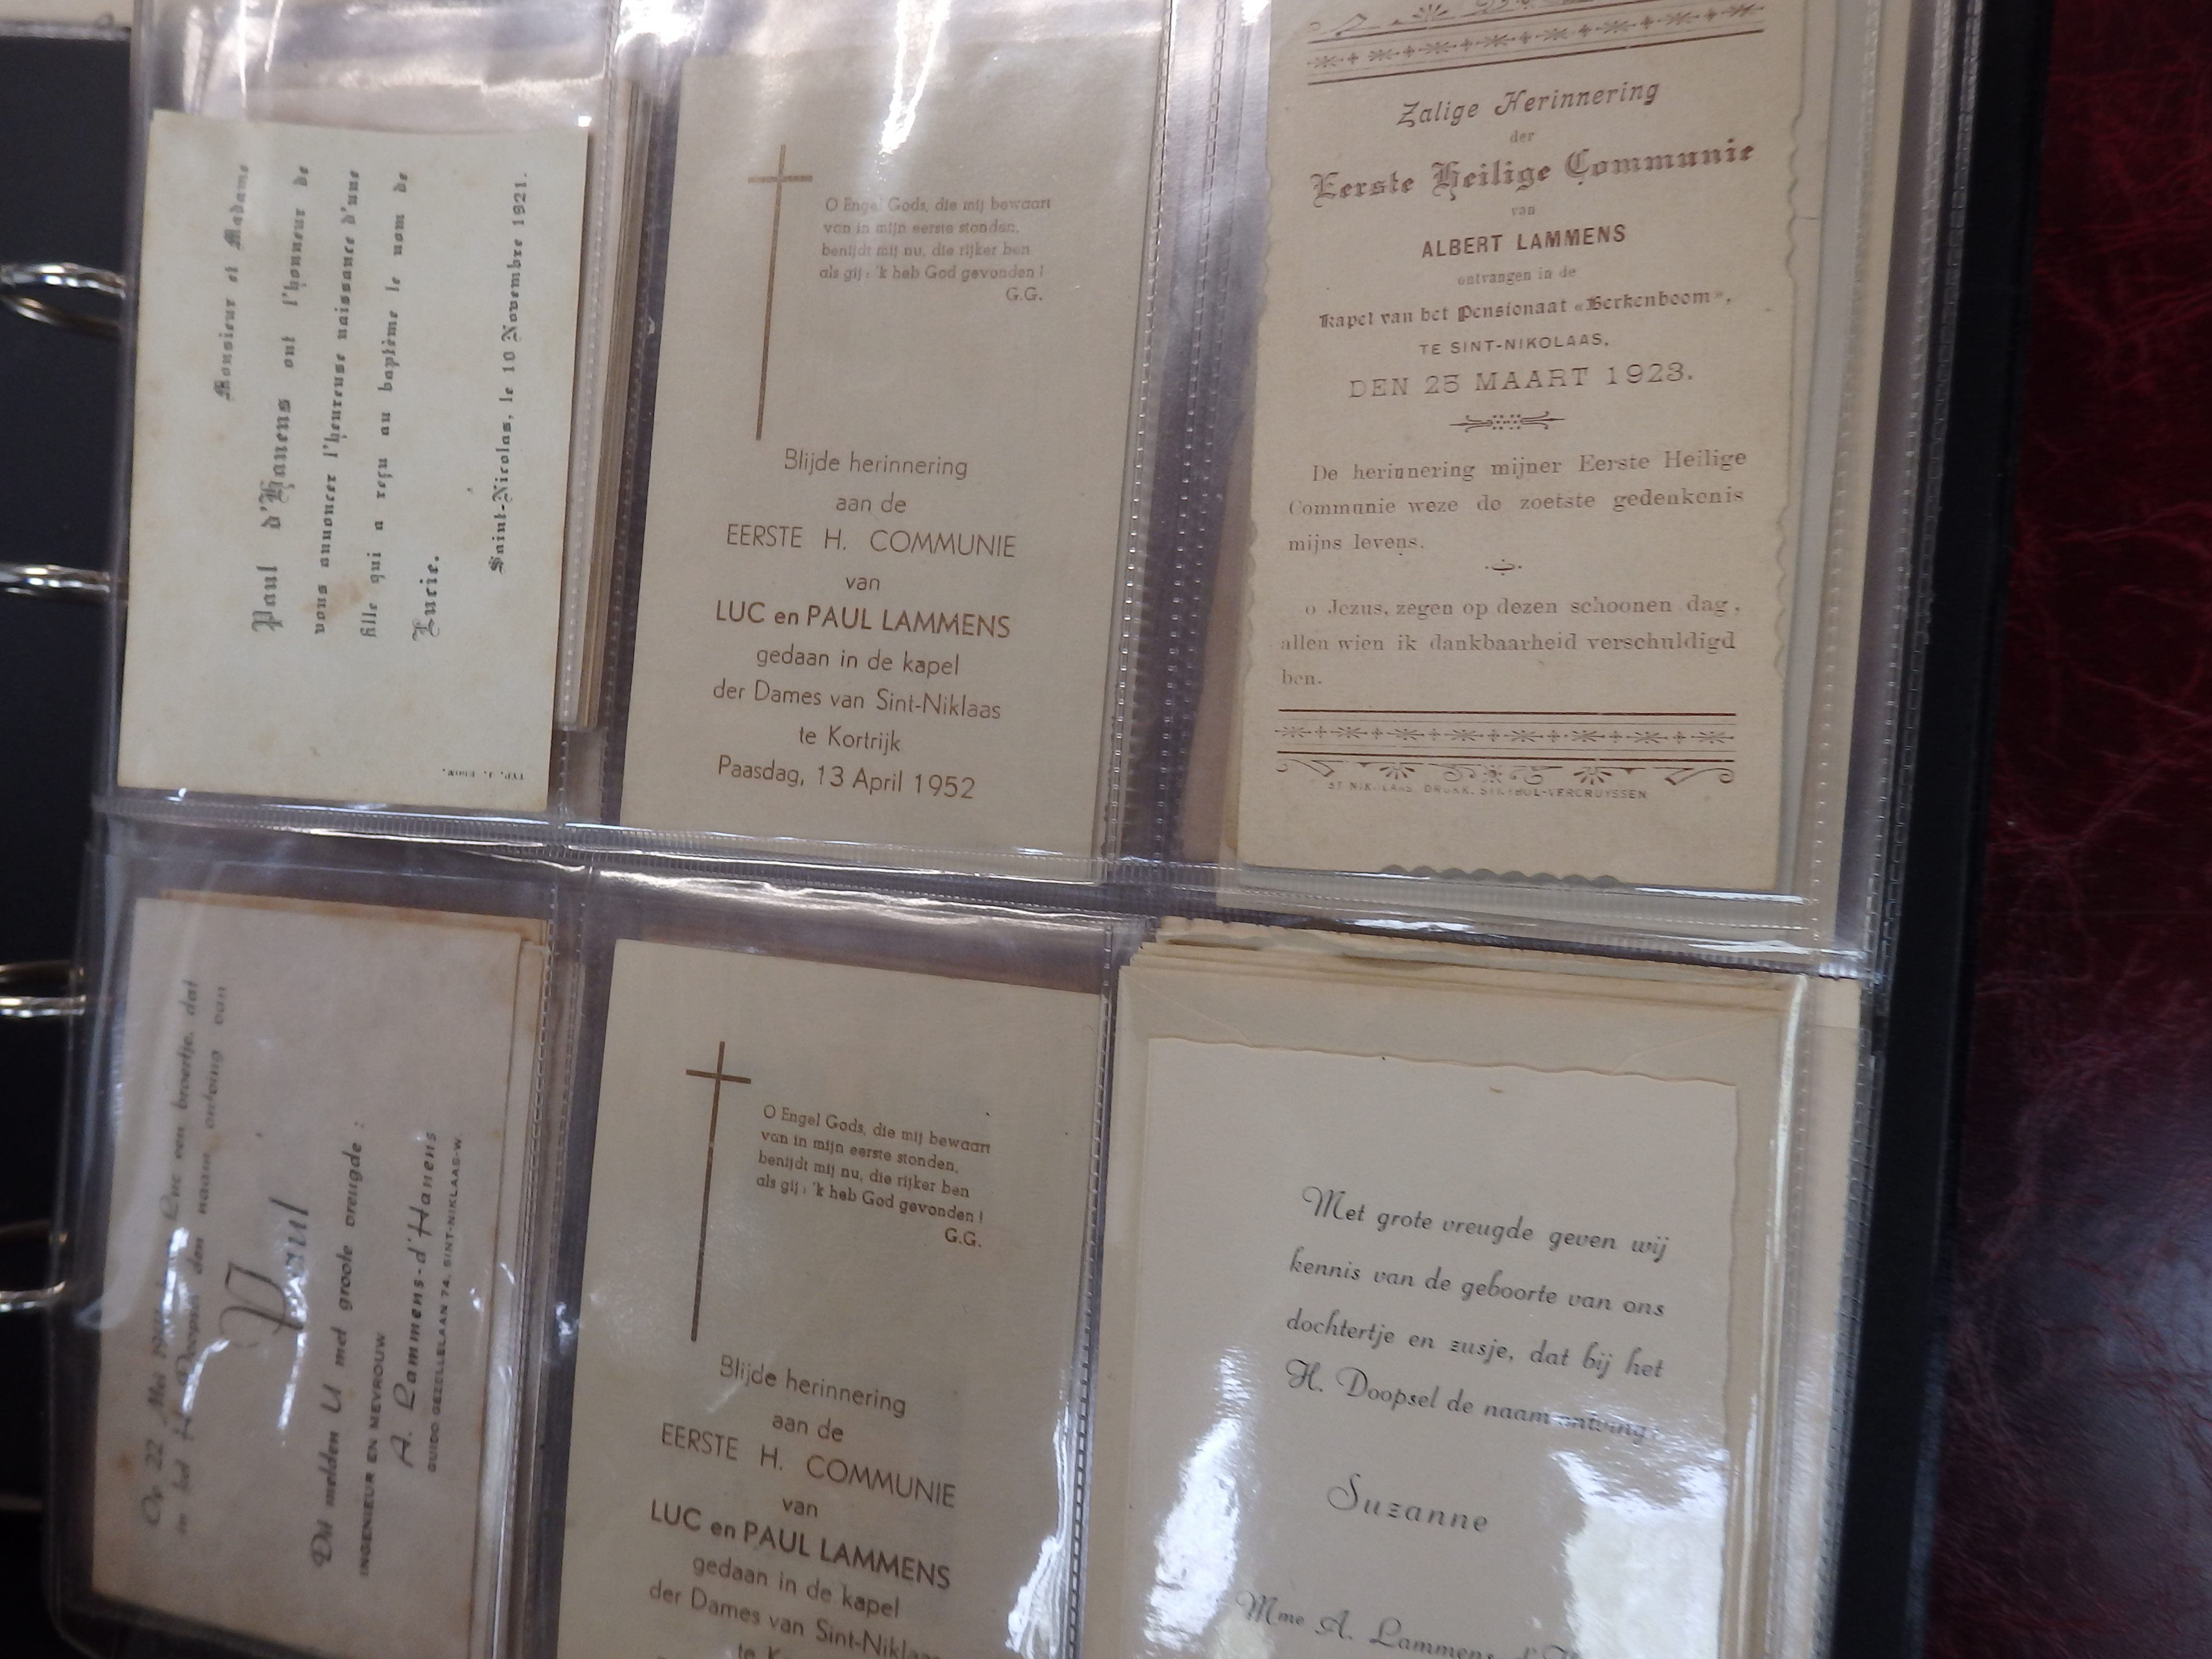 Monsieur et Madame
Paul d'Hanens ont l'honneur de
vous annoncer l'heureuse naissance d'une
fille qui a reçu au baptême le nom de
Lucie.
Saint-Nicolas, le 10 Novembre 1921.
TYP. J. EDOM.
O Engel Gods, die mij bewaart
van in mijn eerste stonden,
benijdt mij nu, die rijker ben
als gij : 'k heb God gevonden !
G.G.
Blijde herinnering
aan de
EERSTE H. COMMUNIE
van
LUC en PAUL LAMMENS
gedaan in de kapel
der Dames van Sint-Niklaas
te Kortrijk
Paasdag, 13 April 1952
Zalige Herinnering
der
Eerste Heilige Communie
van
ALBERT LAMMENS
ontvangen in de
Kapel van het Pensionaat «Berkenboom»,
TE SINT-NIKOLAAS,
DEN 25 MAART 1923.
De herinnering mijner Eerste Heilige
Communie weze de zoetste gedenkenis
mijns levens.
o Jezus, zegen op dezen schoonen dag,
allen wien ik dankbaarheid verschuldigd
ben.
ST NIKOLAAS, DRUKK. STRYBOL-VERCRUYSSEN
Op 22 Mei Luc een broertje, dat
in het H. Doopsel den naam ontving van
Paul
Dit melden U met groote vreugde :
INGENIEUR EN MEVROUW
A. Lammens-d'Hanens
GUIDO GEZELLELAAN 74, SINT-NIKLAAS-W.
O Engel Gods, die mij bewaart
van in mijn eerste stonden,
benijdt mij nu, die rijker ben
als gij : 'k heb God gevonden !
G.G.
Blijde herinnering
aan de
EERSTE H. COMMUNIE
van
LUC en PAUL LAMMENS
gedaan in de kapel
der Dames van Sint-Niklaas
te K
Met grote vreugde geven wij
kennis van de geboorte van ons
dochtertje en zusje, dat bij het
H. Doopsel de naam ontving:
Suzanne
Mme A. Lammens-d'H